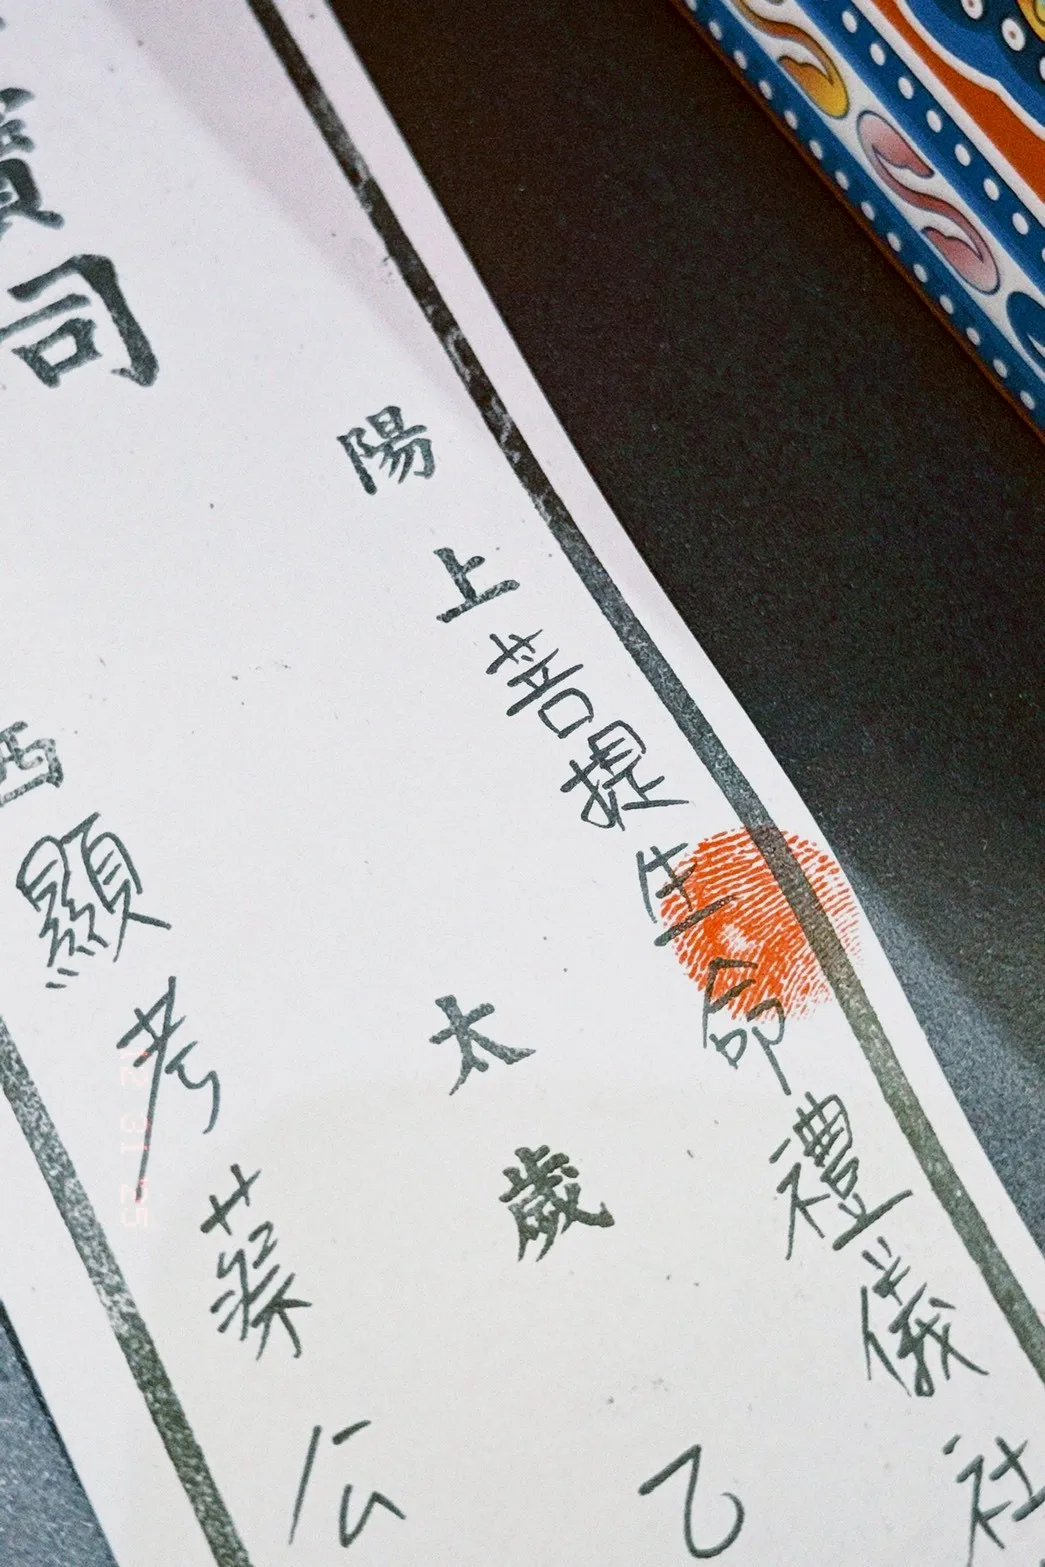 陽上菩提生命禮儀社
太歲乙
顯考蔡公
司
12 31 25